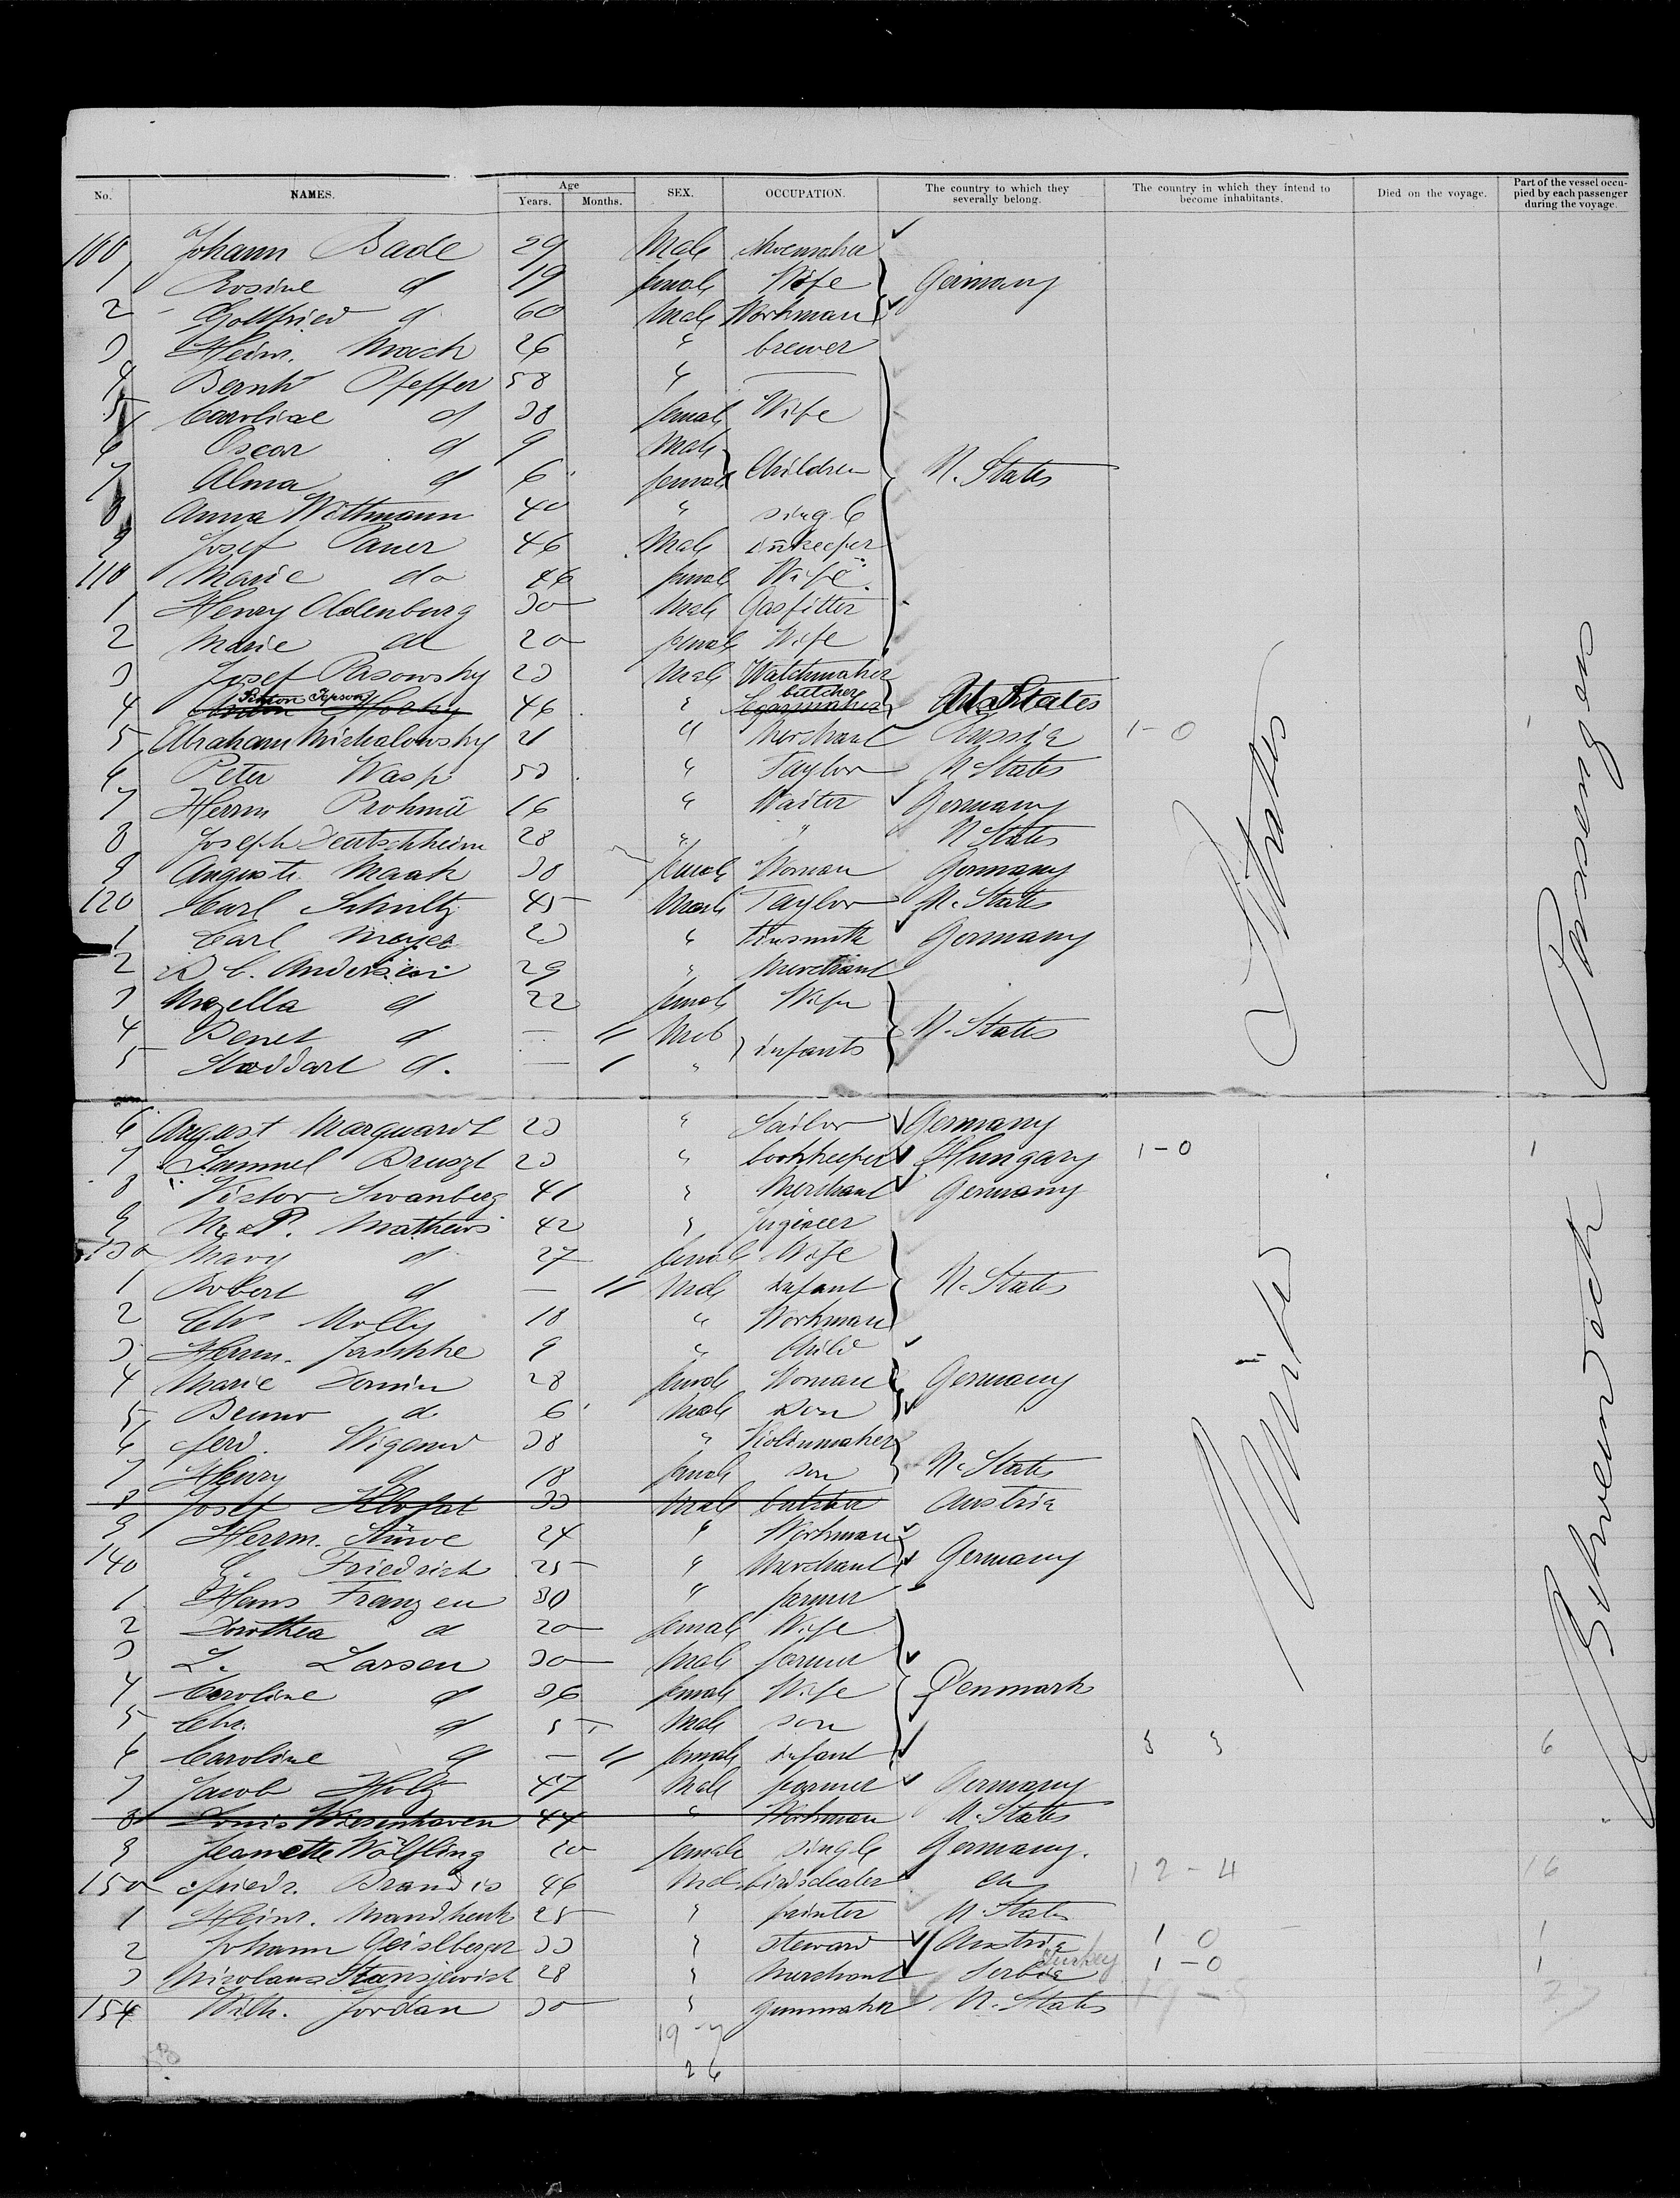 No. NAMES. Age Years. Months. SEX. OCCUPATION. The country to which they severally belong. The country in which they intend to become inhabitants. Died on the voyage. Part of the vessel occupied by each passenger during the voyage.
100 Johann Bade 29 Male shoemaker
1 Rosine d 19 female Wife Germany
2 Gottfried d 60 Male Workman
3 Heinr. Mach 26 " brewer
4 Bernhd Pfeffer 58 "
5 Caroline d 38 female Wife
6 Oscar d 9 Male
7 Alma d 6 female Children U. States
8 Anna Wittmann 40 " single
9 Josef Pauer 46 Male inkeeper
110 Marie do 46 female Wife
1 Henry Oldenburg 30 Male Gasfitter
2 Marie do 20 female Wife
3 Josef Rasowsky 23 Male Watchmaker
4 Simon 46 " butcher U. States
5 Abraham Michalowsky 21 " Merchant Russia 1-0 1
6 Peter Wasp 53 " Taylor U States
7 Herrm 16 " Waiter Germany
8 Joseph Deutschheim 28 " " U States
9 Auguste Maak 38 female Woman Germany
120 Carl Schultz 45 Male Taylor U. States
1 Carl Meyer 23 " tinsmith Germany
2 D C. Andersen 29 " Merchant
3 Mozella d 22 female Wife
4 Benet d — 11 Male infants U. States
5 Stoddart d. — 1 "
6 August Marquardt 23 " Sailor Germany
7 Samuel Bruszt 23 " bookkeeper Hungary 1-0 1
8 Victor Swanberg 41 " Merchant Germany
9 P. Mathews 42 " Engineer
130 Mary d 27 female Wife
1 Robert d — 11 Male Infant U. States
2 Chr Molly 18 " Workman
3 Herrm. Jaschke 9 " Child
4 Marie Domin 28 female Woman Germany
5 Benno d 6 Male Son
6 Ferd. Wigand 38 " Violinmaker
7 Henry d 18 female son U. States
8 Josef Klofat 33 Male butcher Austria
9 Herrm. Stüwe 24 " Workman
140 C. Friedrich 25 " Merchant Germany
1 Hans Franzen 30 " farmer
2 Dorothea d 20 female Wife
3 L. Larsen 30 Male farmer
4 Caroline d 36 female Wife Denmark
5 Chr. d 5 Male son
6 Caroline d — 11 female infant 3 3 6
7 Jacob Holz 47 Male farmer Germany
8 Louis Wiesenhaven 44 " Workman U. States
9 Jeanette Wölfling 20 female single Germany.
150 Friedr. Brandis 46 Male birdsdealer do 12-4 16
1 Heinr. Mandhenk 25 " painter U. States
2 Johann Geislberger 33 " steward Austria 1 0 1
3 Nicolaus Stansjewich 28 " Merchant Serbia Turkey 1-0 1
154 Wilh. Jordan 30 " gunmaker U. States
19-7
26
United States
Zwischendeck Passengers